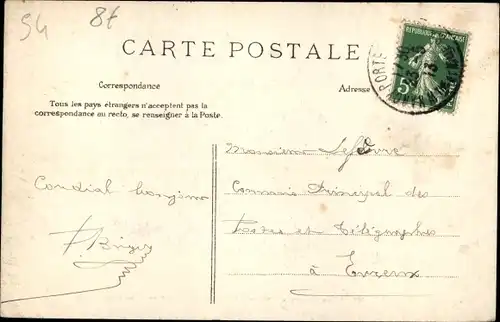 54
87
CARTE POSTALE
REPUBLIQUE FRANCAISE
5
PORTE
13
Correspondance
Adresse
Tous les pays étrangers n'acceptent pas la
correspondance au recto, se renseigner à la Poste.
Monsieur Lefèvre
Commis Principal des
Postes et Télégraphes
à Evreux
Cordial bonjour